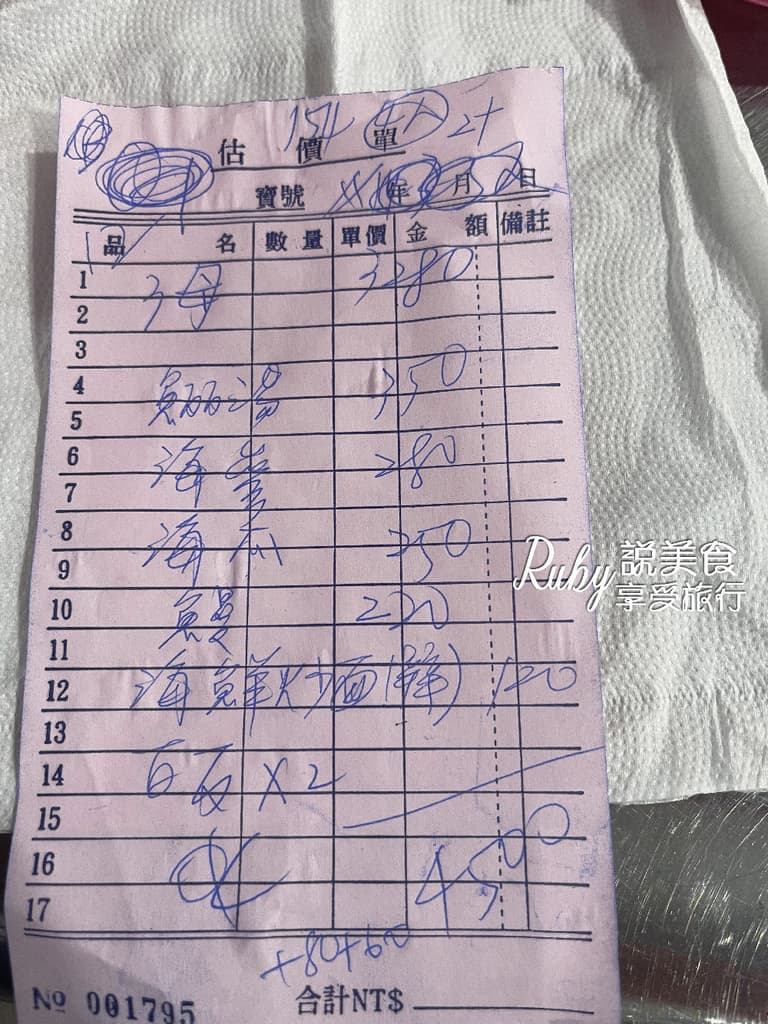 154 4大 2+
估 價 單
寶號 年 月 日
品 名 數量 單價 金 額 備註
1
3母 3280
2
3
4
魚湯 350
5
6
海 280
7
8
海瓜 250
9
10
鰻 220
11
12 海鮮炒面(鮮) 120
13
14 白飯 X2
15
16
OK 4500
17
+80+60
№ 001795 合計NT$
Ruby 說美食
享受旅行